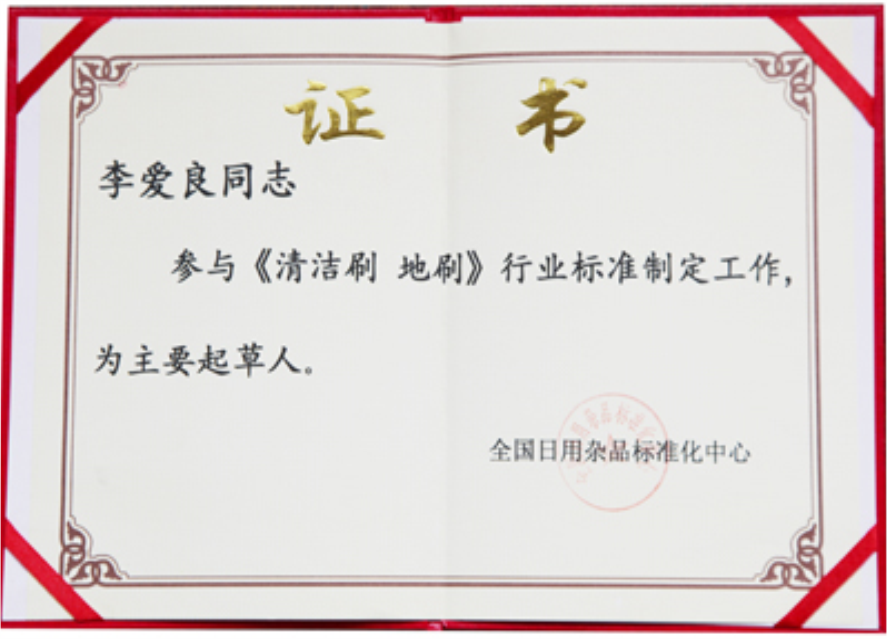 证 书
李爱良同志
参与《清洁刷 地刷》行业标准制定工作,
为主要起草人。
全国日用杂品标准化中心